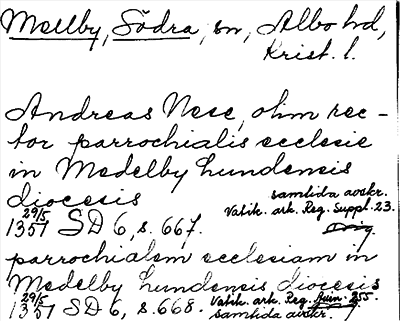 Mellby, Södra, sn, Albo hd,
Krist. l.
Andreas Nese, olim rec-
tor parrochialis ecclesie
in Medelby Lundensis
diocesis
samtida avskr.
29/5 1351 SD 6, s. 667. Vatik. ark. Reg. Suppl. 23.
Orig.
parrochialem ecclesiam in
Medelby Lundensis diocesis
29/5 1351 SD 6, s. 668. Vatik. ark. Reg. Avin. 255.
samtida avskr.